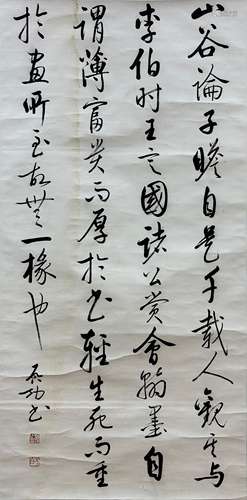 山谷論子瞻自是千載人觀其与
李伯时王定國諸公賞會翰墨自
謂薄富貴而厚於書輕生死而重
於畫所至故無一橡也
启功书